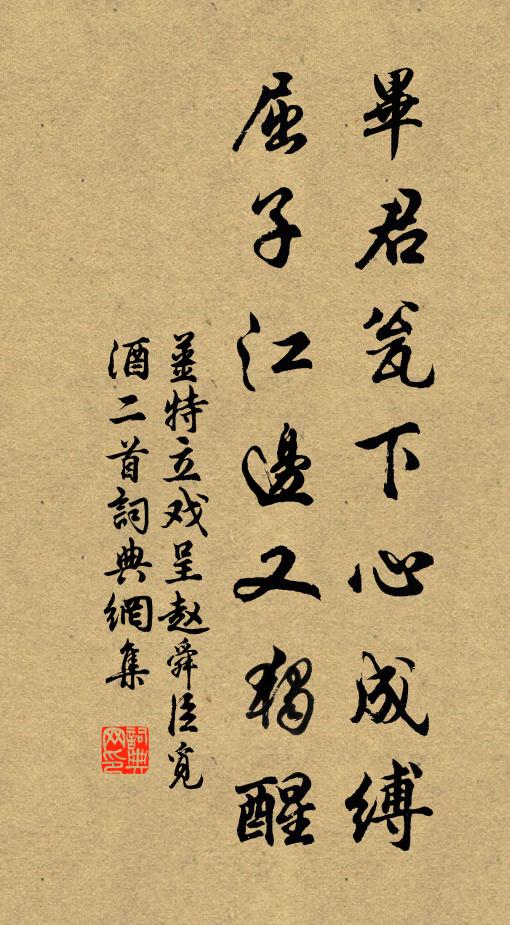 畢君瓮下心成縛
屈子江邊又獨醒
姜特立戏呈赵舜臣覓
酒二首詞典網集
詞典
网印